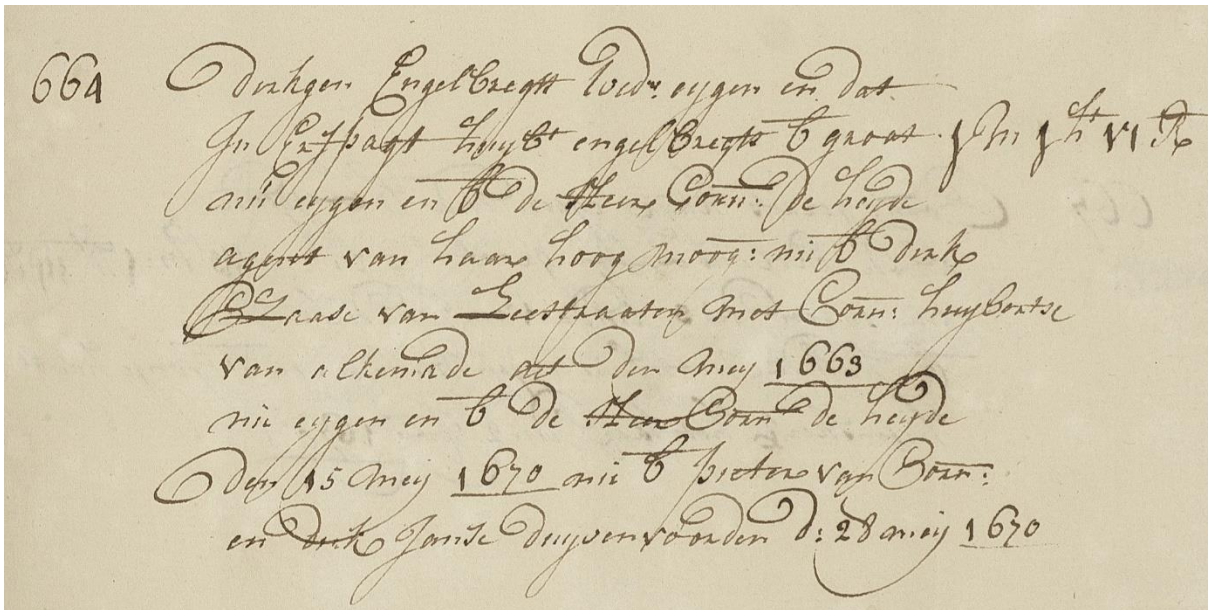 664 dirkgen Engelbregtt wedu: eygen en dat
In Erfpagt huijbt engelbregts b groot j m j ht vj R
nu eygen en b de Heer Corn: de heyde
agent van haar hoog moog: nu b dirk
Claase van Leestraaten met Corn: huijbertse
van alkemade act den meij 1663
nu eygen en b de Heer Corn de heyde
den 15 meij 1670 nu b pieter van Corn:
en dirk Janse duijvenvoorden d: 28 meij 1670